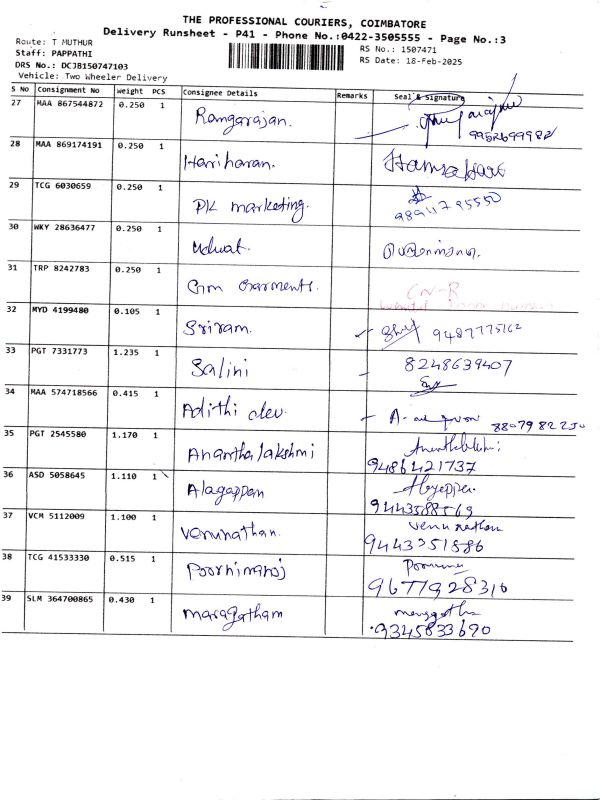 THE PROFESSIONAL COURIERS, COIMBATORE
Delivery Runsheet - P41 - Phone No.:0422-3505555 - Page No.:3
Route: T MUTHUR
Staff: PAPPATHI
DRS No.: DCJB150747103
Vehicle: Two Wheeler Delivery
RS No.: 1507471
RS Date: 18-Feb-2025
S No Consignment No Weight PCS Consignee Details Remarks Seal & Signature
27 MAA 867544872 0.250 1 Rangarajan. 9952699982
28 MAA 869174191 0.250 1 Hariharan.
29 TCG 6030659 0.250 1 PK marketing. 9894795550
30 WKY 28636477 0.250 1
31 TRP 8242783 0.250 1 Garments. CN-R
32 MYD 4199480 0.105 1 Sriram. 9487775162
33 PGT 7331773 1.235 1 Salini 8248639407
34 MAA 574718566 0.415 1 Adithi dev.
35 PGT 2545580 1.170 1 Anantha lakshmi 9486421737
36 ASD 5058645 1.110 1 Alagappan
37 VCM 5112009 1.100 1 Venunathan. Venunathan
38 TCG 41533330 0.515 1 9677928310
39 SLM 364700865 0.430 1 maragatham 9345833690